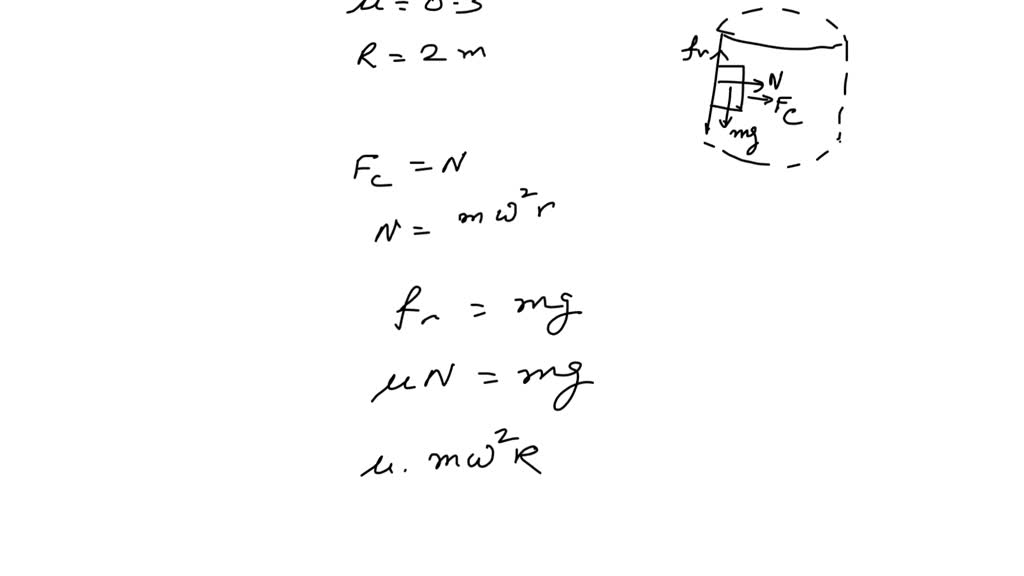 R = 2 m
fr
N
Fc
mg
Fc = N
N = mω²r
fr = mg
μN = mg
μ. mω²R